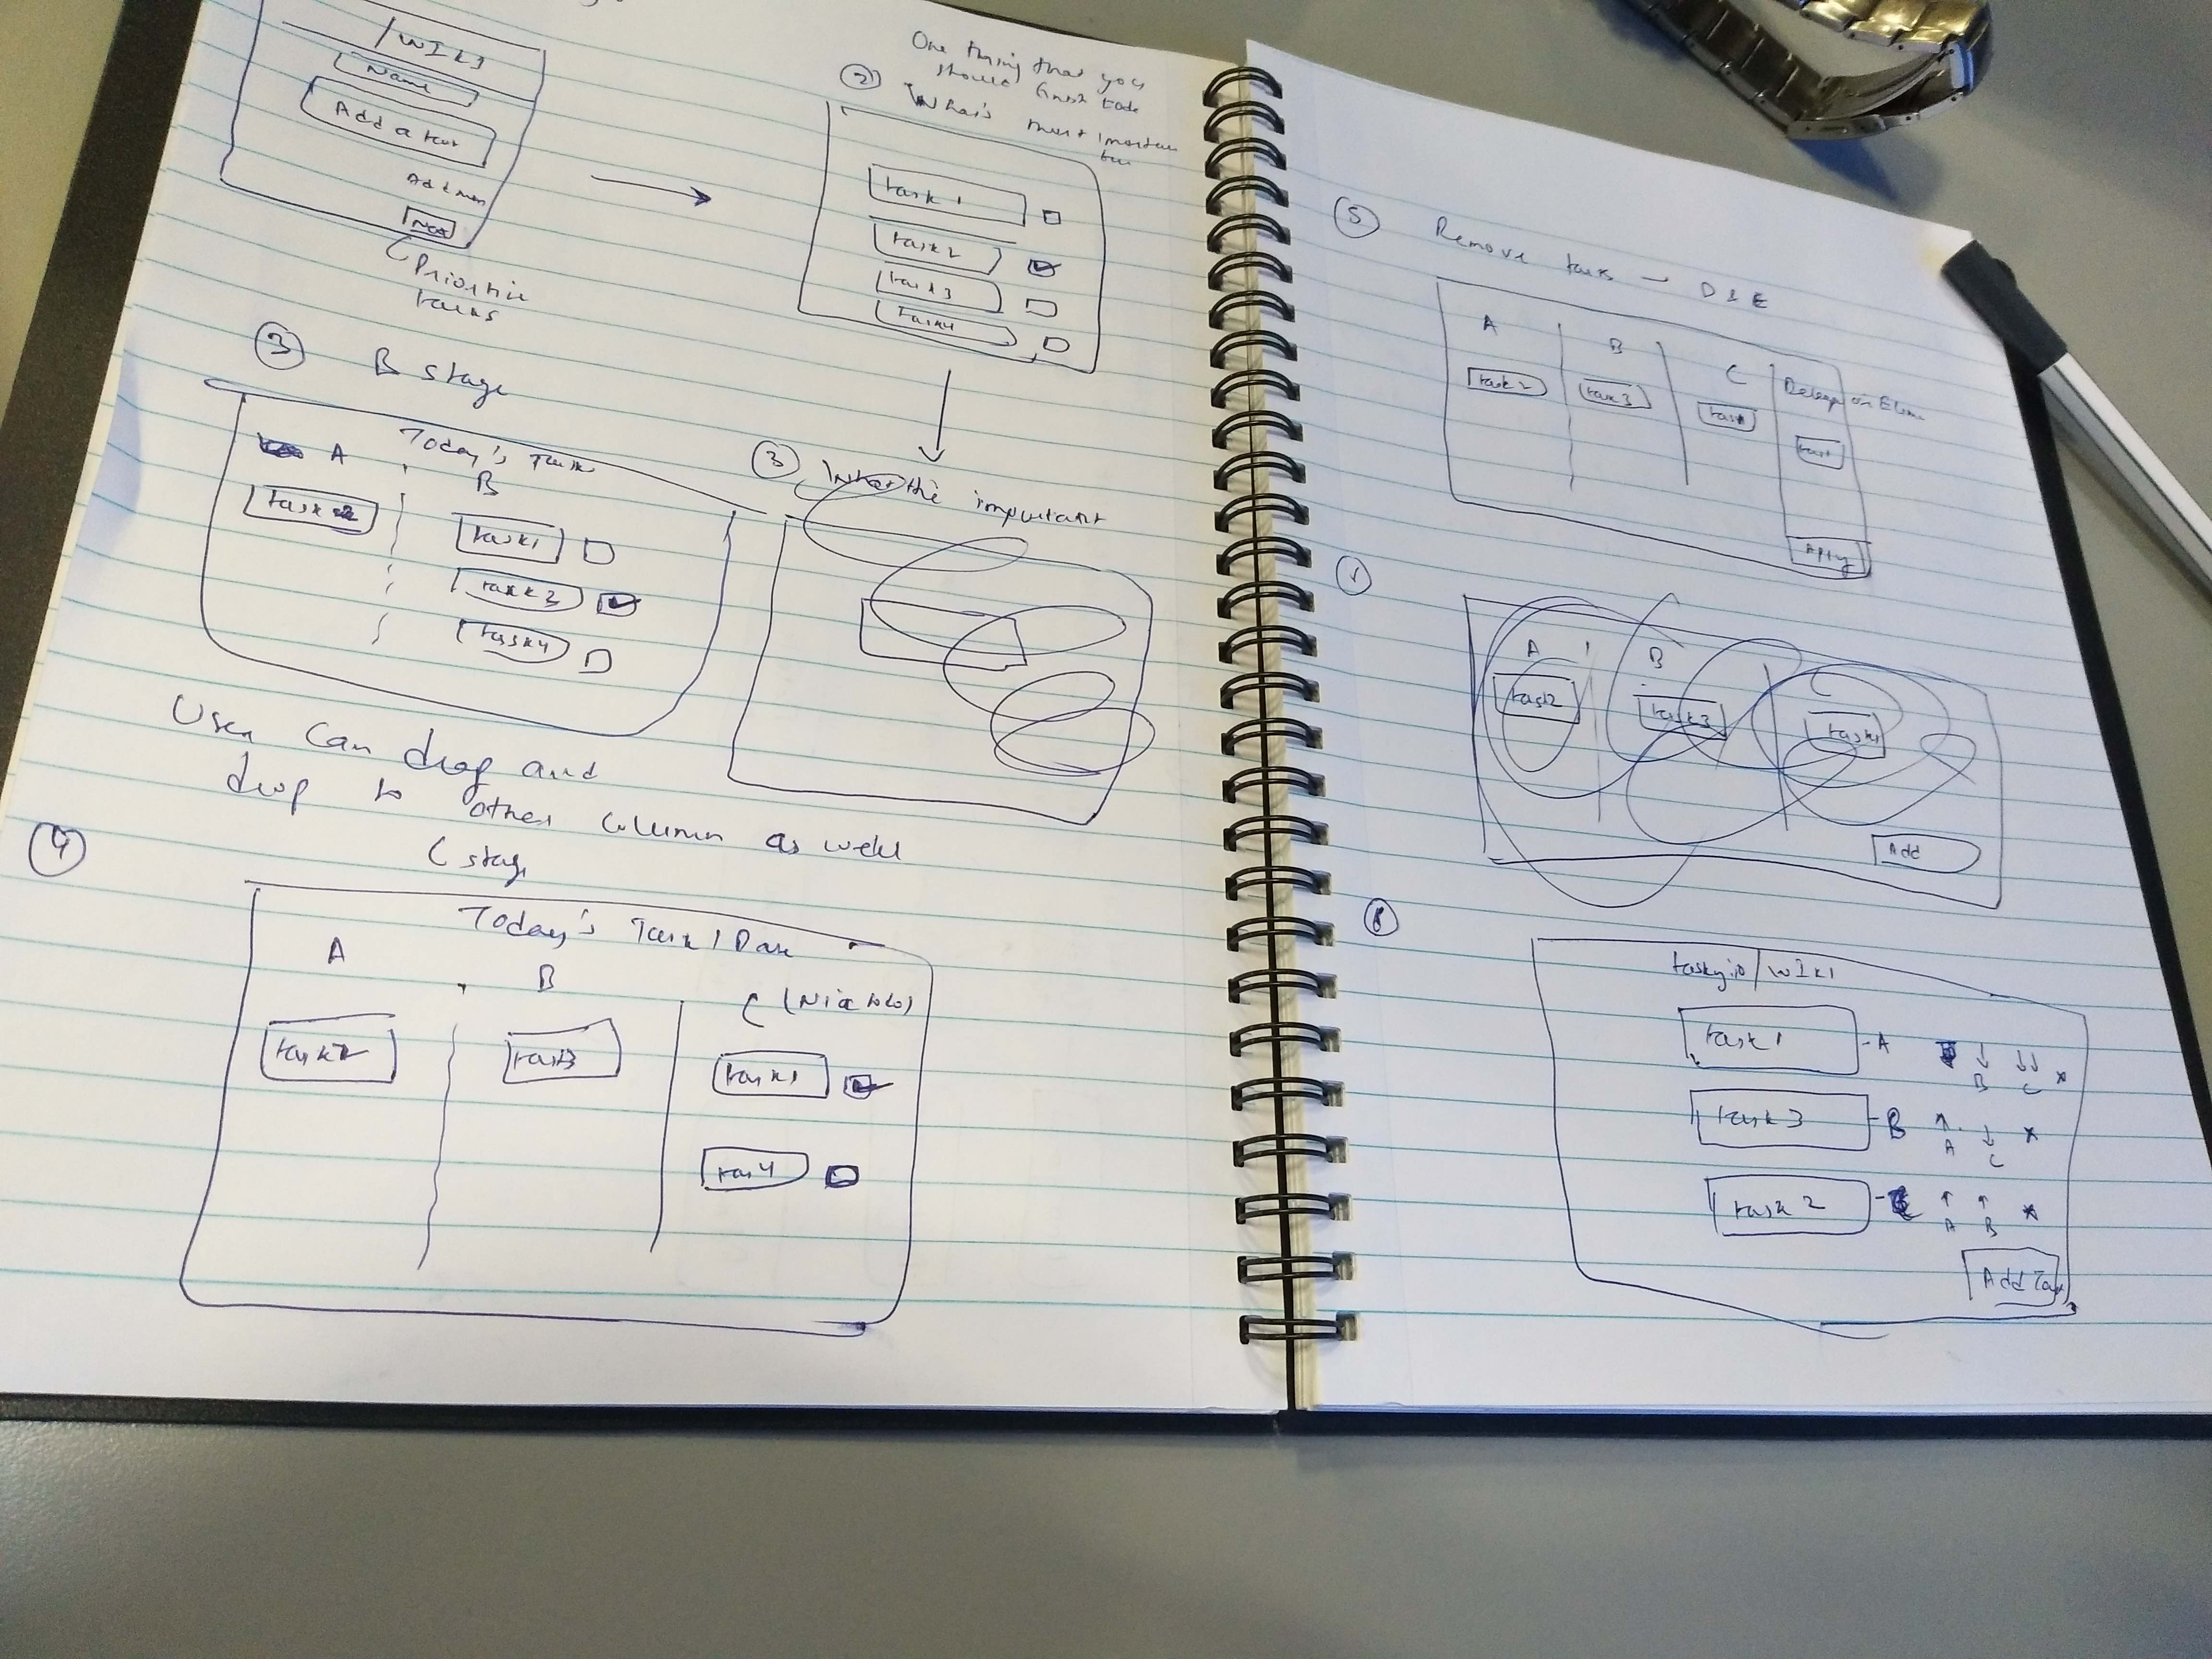 /WIKI
Name
Add a task
Add more
Next
Prioritie
tasks
One thing that you
should finish
②
What's most important
task 1
task 2
task 3
task 4
③ B stage
Today's Task
A B
task 2
task 1
task 3
task 4
③ the important
User can drag and
drop to other column as well
④ C stage
Today's Task / Date
A B C
task 2 task3 task1
tas4
⑤ Remove tasks → D & E
A B C
task 2 task3 task
task
Apply
A B C
task2 task3 task1
Add
⑥
tasky.io / WIKI
task 1 - A ↓ ↓↓ ×
B C
task 3 - B ↑ ↓ ×
A C
task 2 - C ↑ ↑ ×
A B
Add Task